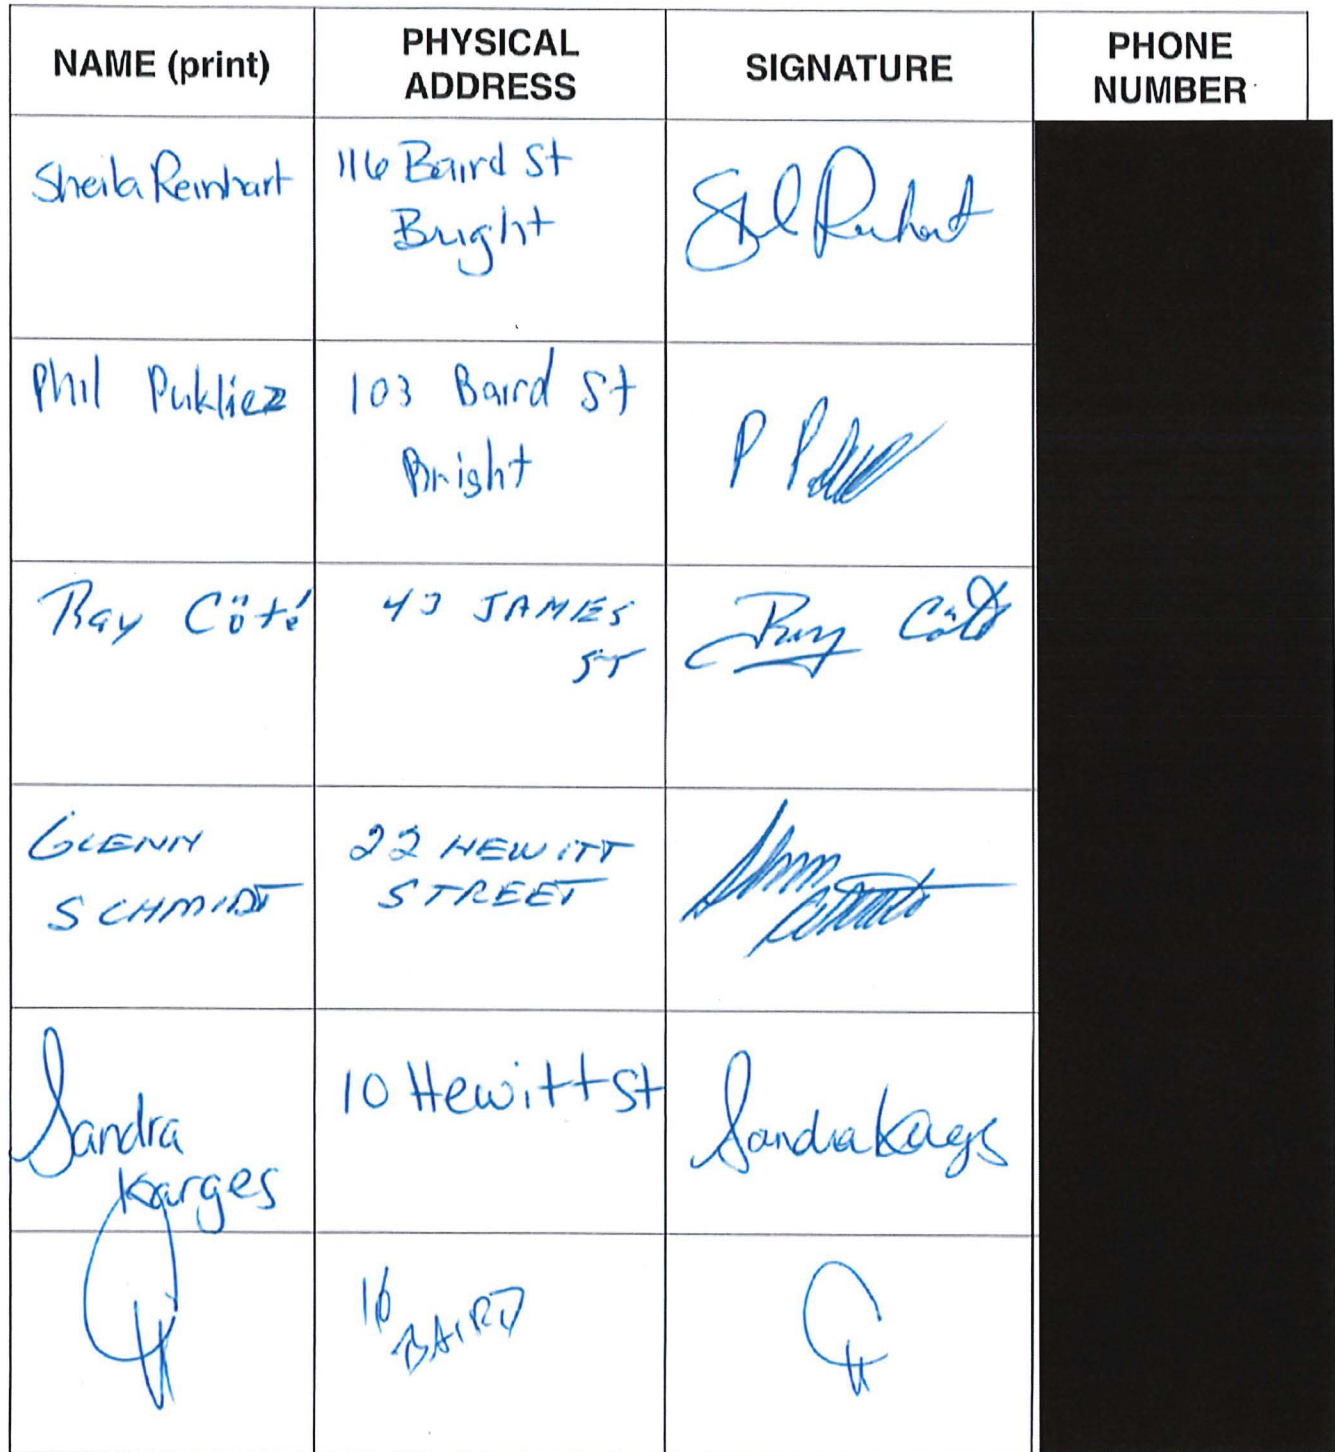 NAME (print)
PHYSICAL
ADDRESS
SIGNATURE
PHONE
NUMBER
Sheila Reinhart
116 Baird St
Bright
Phil Pukliez
103 Baird St
Bright
Ray Cöté
43 JAMES
ST
Ray Cöté
GLENN
SCHMIDT
22 HEWITT
STREET
Sandra
Karges
10 Hewitt St
Sandra Karges
16
BAIRD